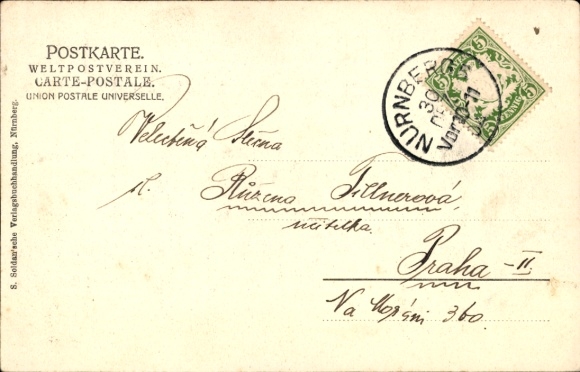 POSTKARTE.
WELTPOSTVEREIN.
CARTE-POSTALE.
UNION POSTALE UNIVERSELLE.
S. Soldan'sche Verlagsbuchhandlung, Nürnberg.
NÜRNBERG
30
Vorm
11
5
5
Velectěná slečna
sl. Růžena Tillnerová,
učitelka.
Praha - II.
Na Moráni 360.